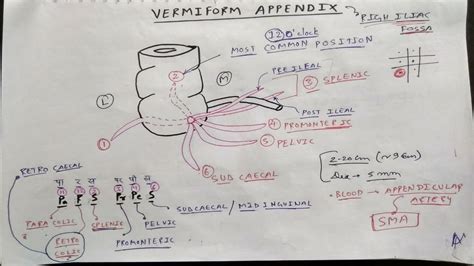 VERMIFORM APPENDIX
RIGH ILIAC
FOSSA
12 O'clock
MOST COMMON POSITION
L
2
M
PREILEAL
3 SPLENIC
POST ILEAL
4 PROMONTERIC
5 PELVIC
1
6 SUB CAECAL
2-20cm (~9cm)
Dia → 5 mm
BLOOD → APPENDICULAR
ARTERY
SMA
RETRO CAECAL
Pa P S Pr Pe S
PARA COLIC
SPLENIC
PELVIC
SUBCAECAL / MIDINGUINAL
RETRO
COLIC
PROMONTERIC